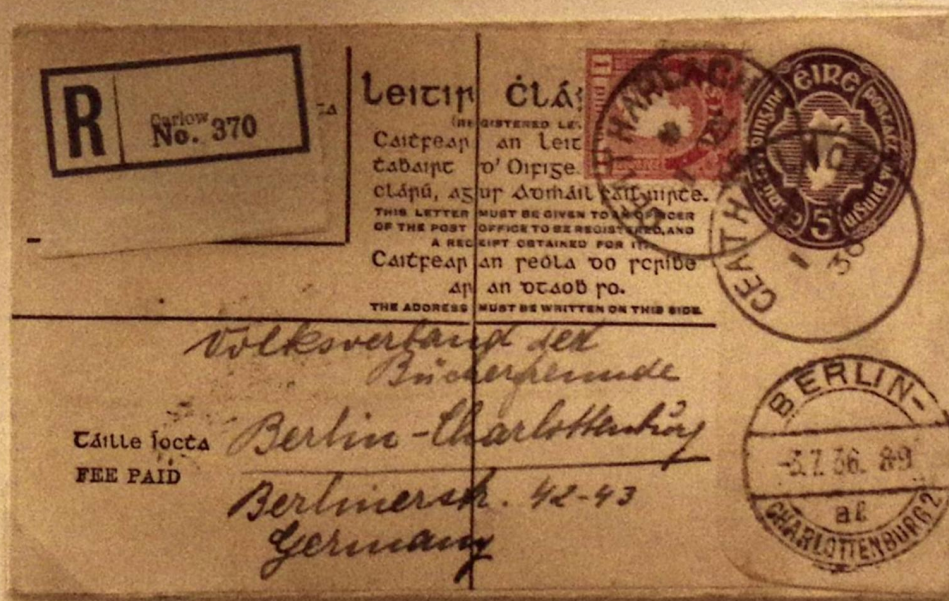 R
Carlow
No. 370
Leitir Ċlá
(REGISTERED LE
Caitfear an Leit
taḃairt d'Oifige
clárú, agus Admháil
THIS LETTER MUST BE GIVEN TO AN OFFICER
OF THE POST OFFICE TO BE REGISTERED, AND
A RECEIPT OBTAINED FOR IT.
Caitfear an seóla do scríbe
ar an dtaoḃ so.
THE ADDRESS MUST BE WRITTEN ON THIS SIDE.
1
ÉIRE
5
CEATHARLACH
CEATH
36
Volksverband der
Bücherfreunde
Berlin-Charlottenburg
Táille íocta
FEE PAID
Berlinerstr. 42-43
Germany
BERLIN-
-3.7.36. 8-9
CHARLOTTENBURG 2